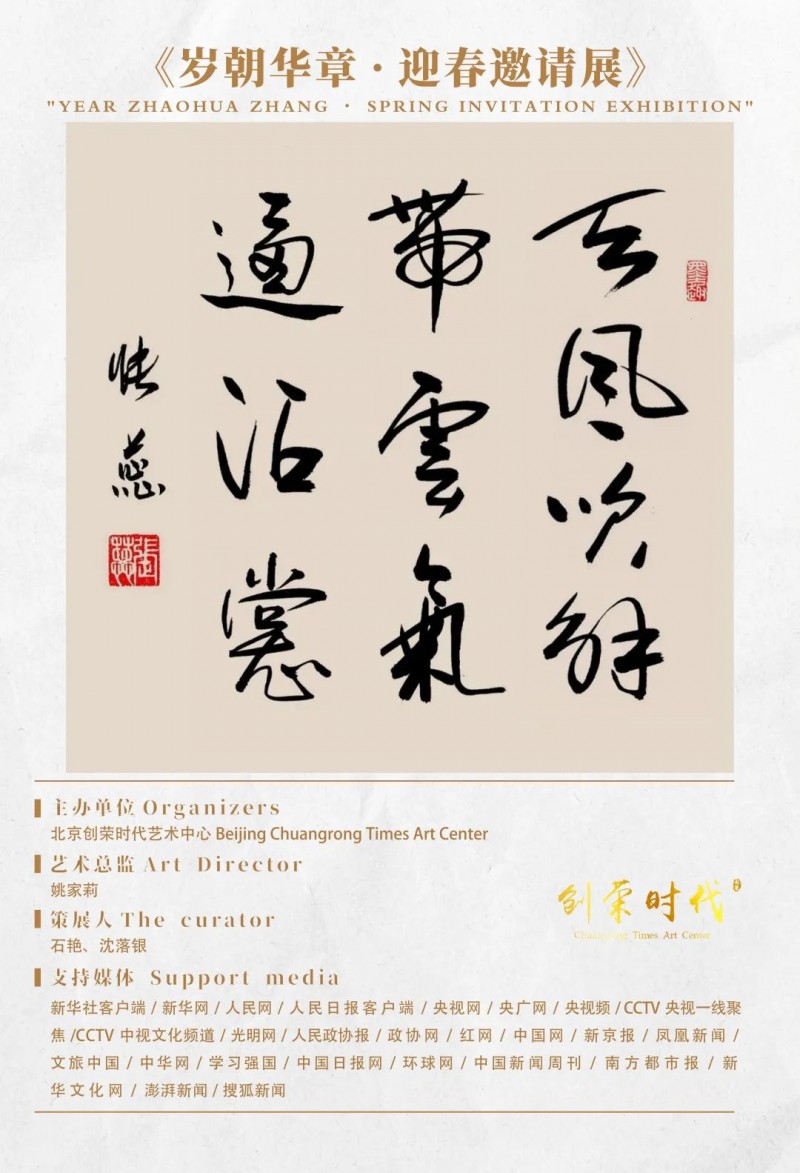 《岁朝华章·迎春邀请展》
"YEAR ZHAOHUA ZHANG · SPRING INVITATION EXHIBITION"
墨趣
天風吹解
帶雲氣
逼沾裳
張蕊
主办单位 Organizers
北京创荣时代艺术中心 Beijing Chuangrong Times Art Center
艺术总监 Art Director
姚家莉
策展人 The curator
石艳、沈落银
创荣时代
Chuangrong Times Art Center
支持媒体 Support media
新华社客户端 / 新华网 / 人民网 / 人民日报客户端 / 央视网 / 央广网 / 央视频 / CCTV 央视一线聚
焦 /CCTV 中视文化频道 / 光明网 / 人民政协报 / 政协网 / 红网 / 中国网 / 新京报 / 凤凰新闻 /
文旅中国 / 中华网 / 学习强国 / 中国日报网 / 环球网 / 中国新闻周刊 / 南方都市报 / 新
华文化网 / 澎湃新闻 / 搜狐新闻